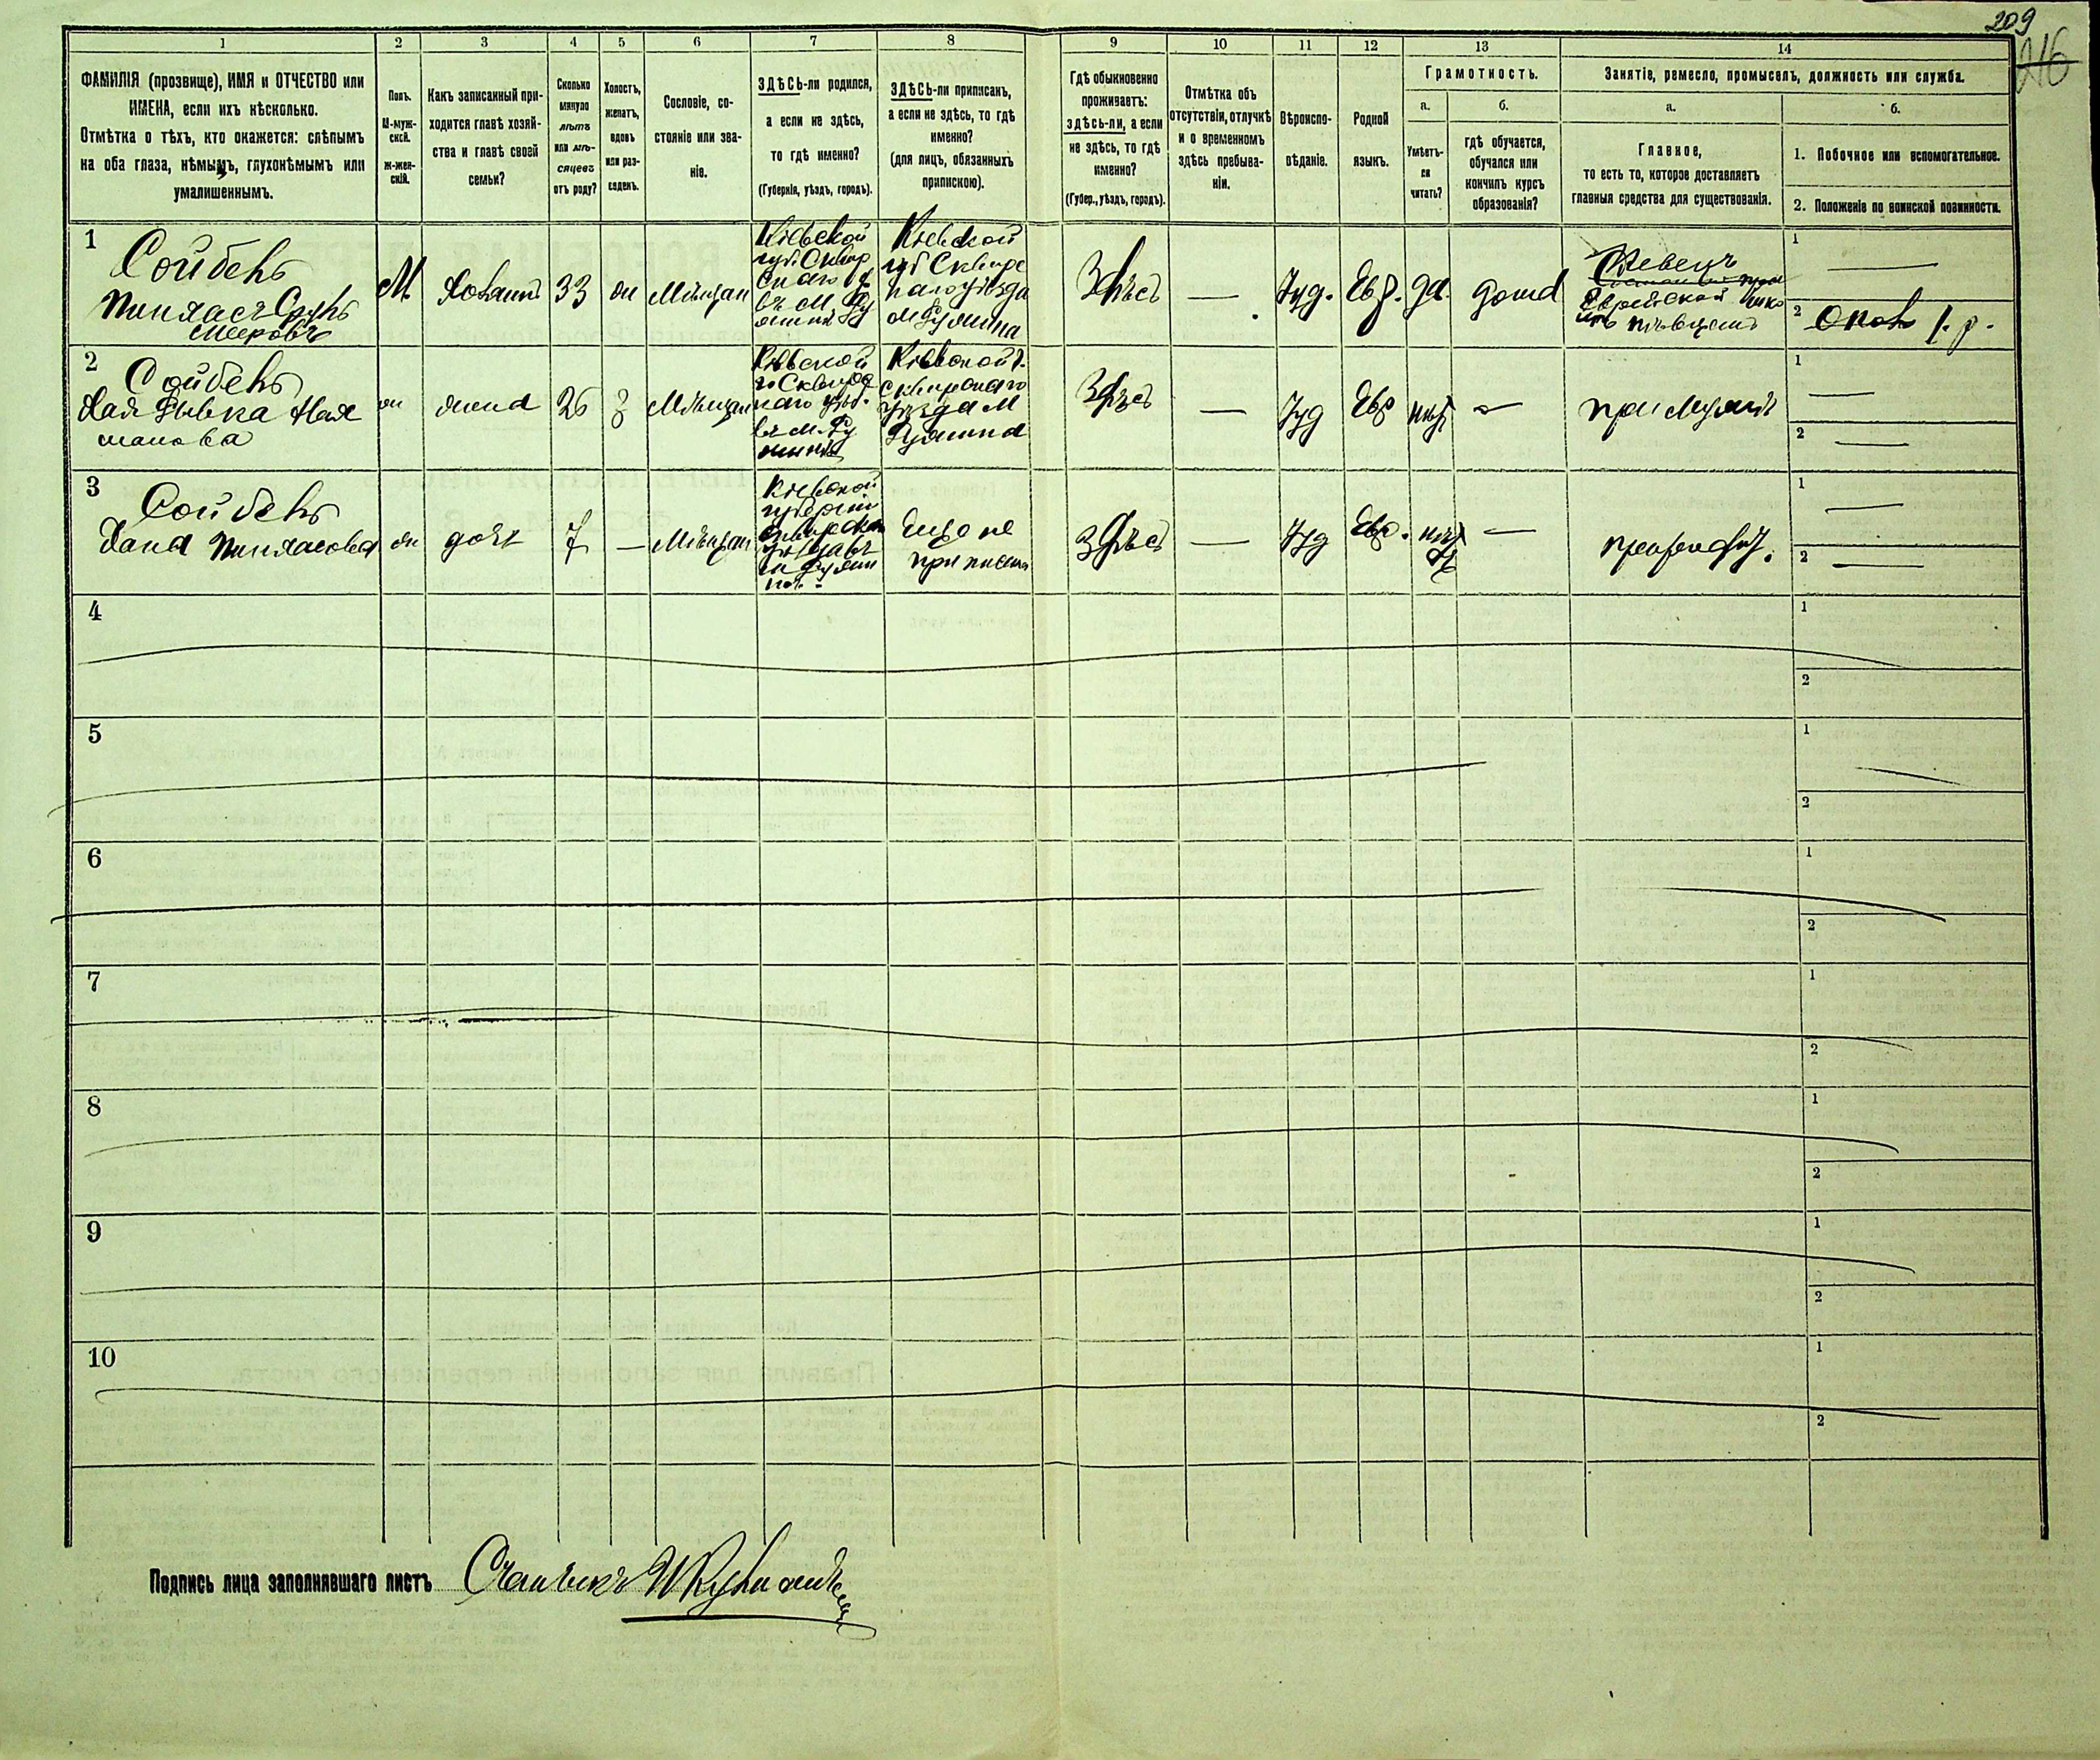 209
216
1 2 3 4 5 6 7 8 9 10 11 12 13 14
ФАМИЛІЯ (прозвище), ИМЯ и ОТЧЕСТВО или
ИМЕНА, если ихъ нѣсколько.
Отмѣтка о тѣхъ, кто окажется: слѣпымъ
на оба глаза, нѣмымъ, глухонѣмымъ или
умалишеннымъ.
Полъ.
М-муж-
ской.
Ж-жен-
скій.
Какъ записанный при-
ходится главѣ хозяй-
ства и главѣ своей
семьи?
Сколько
минуло
лѣтъ
или мѣ-
сяцевъ
отъ роду?
Холостъ,
женатъ,
вдовъ
или раз-
веденъ.
Сословіе, со-
стояніе или зва-
ніе.
ЗДѢСЬ-ли родился,
а если не здѣсь,
то гдѣ именно?
(Губернія, уѣздъ, городъ).
ЗДѢСЬ-ли приписанъ,
а если не здѣсь, то гдѣ
именно?
(для лицъ, обязанныхъ
припискою).
Гдѣ обыкновенно
проживаетъ:
здѣсь-ли, а если
не здѣсь, то гдѣ
именно?
(Губер., уѣздъ, городъ).
Отмѣтка объ
отсутствіи, отлучкѣ
и о временномъ
здѣсь пребыва-
ніи.
Вѣроиспо-
вѣданіе.
Родной
языкъ.
Грамотность.
а.
Умѣетъ-
ли
читать?
б.
гдѣ обучается,
обучался или
кончилъ курсъ
образованія?
Занятіе, ремесло, промыселъ, должность или служба.
а.
Главное,
то есть то, которое доставляетъ
главныя средства для существованія.
б.
1. Побочное или вспомогательное.
2. Положеніе по воинской повинности.
1
Сойбель
Пинхасъ Сруль
Мееровъ
М
хозяинъ
33
Мѣщан
Кіевской
губ. Сквир
скаго
въ М. Ру
жинѣ
Кіевской
губ Сквирс
каго уѣзда
м Ружина
Здѣсь
—
Іуд.
Евр.
да.
дома
Еврейской
1 —
2
2
Сойбель
Хая Рывка
жена
26
З
Мѣщан
Кіевской
г. Сквирс
каго уѣз.
въ М. Ру
жинѣ
Кіевской г.
Сквирскаго
уѣзда М
Ружина
Здѣсь
—
Іуд
Евр
нѣт
—
при мужѣ
1 —
2 —
3
Сойбель
Хана Пинхасова
дочь
7
—
Мѣщан
Кіевской
губерніи
Сквирскаго
Еще не
приписана
здѣсь
—
Іуд
Евр.
нѣт
—
при отцѣ.
1 —
2 —
4 1 2
5 1 2
6 1 2
7 1 2
8 1 2
9 1 2
10 1 2
Подпись лица заполнявшаго листъ
Счетчикъ